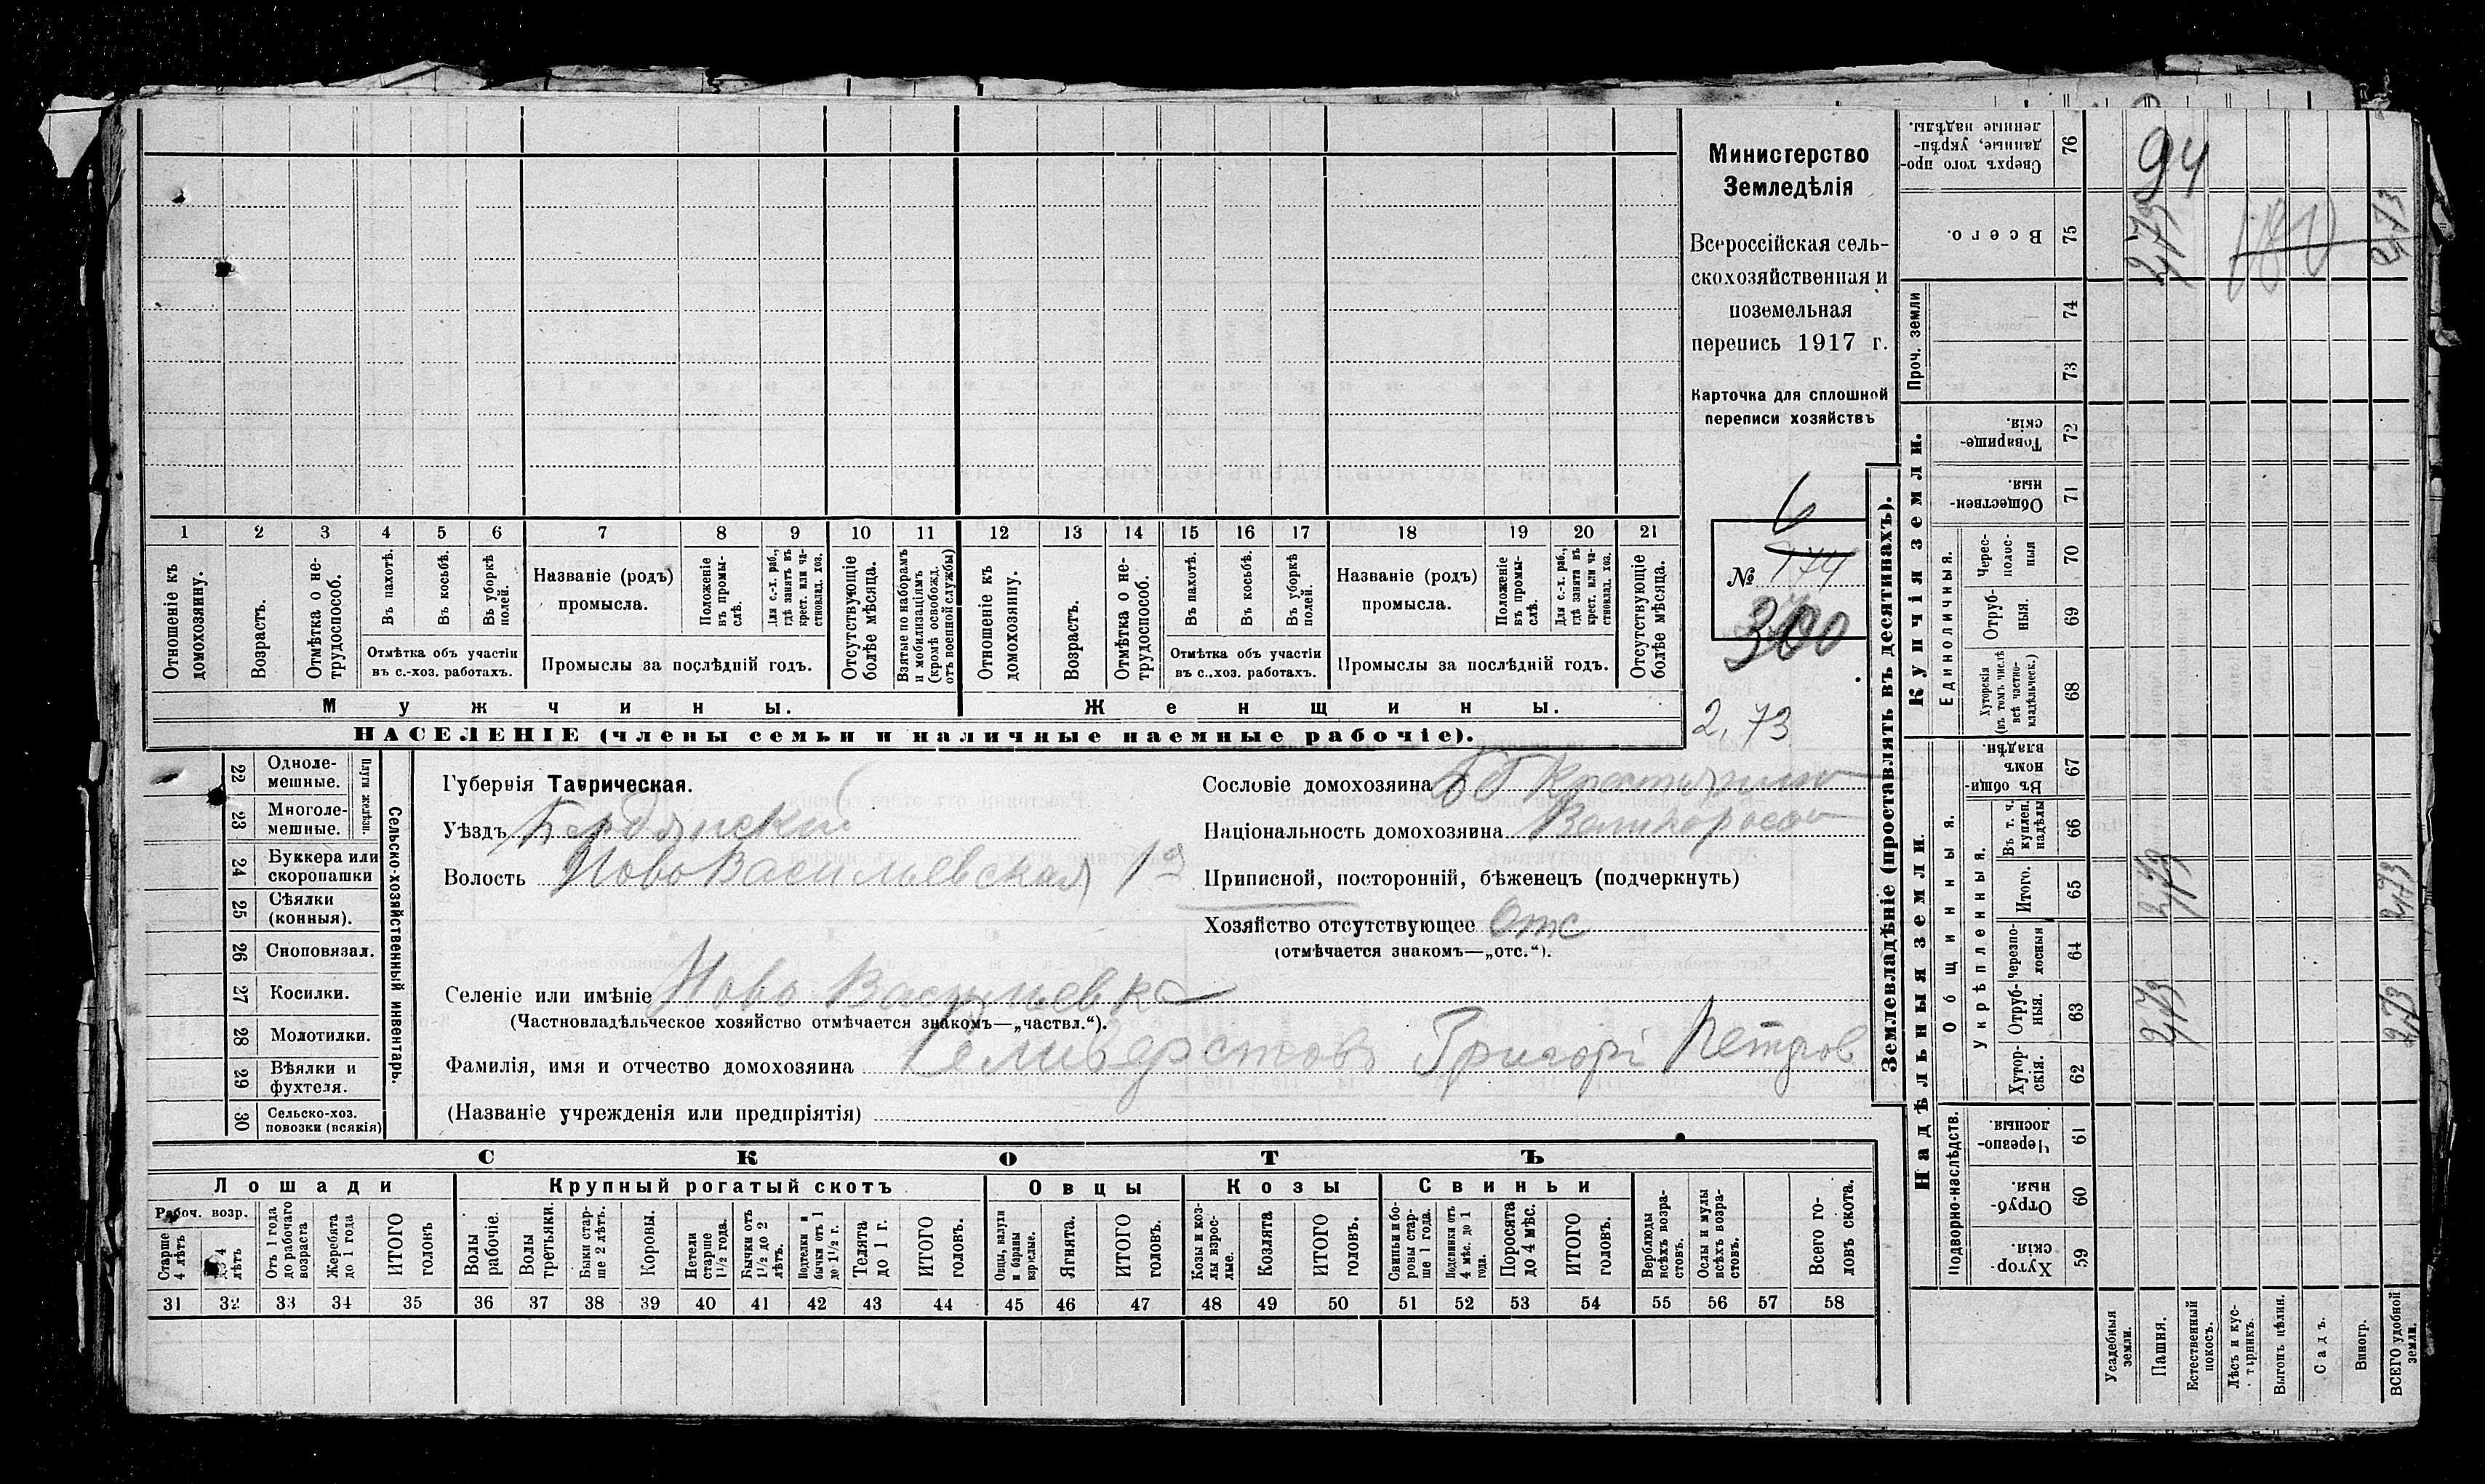 Министерство
Земледѣлія
Всероссійская сель-
скохозяйственная и
поземельная
перепись 1917 г.
Карточка для сплошной
переписи хозяйствъ
6
№ 174
300
2,73
1 2 3 4 5 6 7 8 9 10 11 12 13 14 15 16 17 18 19 20 21
Отношеніе къ домохозяину.
Возрастъ.
Отмѣтка о не-трудоспособ.
Въ пахотѣ.
Въ косьбѣ.
Въ уборкѣ полей.
Отмѣтка объ участіи
въ с.-хоз. работахъ.
Названіе (родъ)
промысла.
Положеніе въ промы-слѣ.
Для с.-х. раб., гдѣ занятъ въ крест. или ча-стновлад. хоз.
Промыслы за послѣдній годъ.
Отсутствующіе болѣе мѣсяца.
Взятые по наборамъ и мобилизаціямъ (кромѣ освобожд. отъ военной службы)
Отношеніе къ домохозяину.
Возрастъ.
Отмѣтка о не-трудоспособ.
Въ пахотѣ.
Въ косьбѣ.
Въ уборкѣ полей.
Отмѣтка объ участіи
въ с.-хоз. работахъ.
Названіе (родъ)
промысла.
Положеніе въ промы-слѣ.
Для с.-х. раб., гдѣ занята въ крест. или ча-стновлад. хоз.
Промыслы за послѣдній годъ.
Отсутствующіе болѣе мѣсяца.
Мужчины.
Женщины.
НАСЕЛЕНІЕ (члены семьи и наличные наемные рабочіе).
22 Одноле-мешные.
23 Многоле-мешные.
Плуги желѣзн.
24 Буккера или скоропашки
25 Сѣялки (конныя).
26 Сноповязал.
27 Косилки.
28 Молотилки.
29 Вѣялки и фухтеля.
30 Сельско-хоз. повозки (всякія)
Сельско-хозяйственный инвентарь.
Губернія Таврическая.
Уѣздъ Бердянский
Волость Ново Васильевская 1я
Селеніе или имѣніе Ново Васильевка
(Частновладѣльческое хозяйство отмѣчается знакомъ—„частвл.“).
Фамилія, имя и отчество домохозяина Селиверстовъ Григорі Петров
(Названіе учрежденія или предпріятія)
Сословіе домохозяина
Національность домохозяина Великоросс
Приписной, посторонній, бѣженецъ (подчеркнуть)
Хозяйство отсутствующее Отс
(отмѣчается знакомъ—„отс.“).
СКОТЪ
Лошади
Крупный рогатый скотъ
Овцы
Козы
Свиньи
Рабоч. возр.
Старше 4 лѣтъ
До 4 лѣтъ
Отъ 1 года до рабочаго возраста
Жеребята до 1 года
ИТОГО головъ
Волы рабочіе.
Волы третьяки.
Быки стар-ше 2 лѣтъ.
Коровы.
Нетели старше 1½ года.
Бычки отъ 1½ до 2 лѣтъ.
Подтелки и бычки отъ 1 до 1½ г.
Телята до 1 г.
ИТОГО головъ.
Овцы, валухи и бараны взрослые.
Ягнята.
ИТОГО головъ.
Козы и коз-лы взрос-лые.
Козлята
ИТОГО головъ.
Свиньи и бо-ровы стар-ше 1 года.
Подсвинки отъ 4 мѣс. до 1 года.
Поросята до 4 мѣс.
ИТОГО головъ.
Верблюды всѣхъ возра-стовъ.
Ослы и мулы всѣхъ возра-стовъ.
Всего го-ловъ скота.
31 32 33 34 35 36 37 38 39 40 41 42 43 44 45 46 47 48 49 50 51 52 53 54 55 56 57 58
Землевладѣніе (проставлять въ десятинахъ).
Надѣльныя земли.
Купчія земли.
Проч. земли
Подворно-наслѣдств.
Общинныя.
Укрѣпленныя.
Единоличныя.
Сверхъ того про-данные, укрѣп-ленные надѣлы. 76
Всего. 75
74
73
Товарище-скія. 72
Обществен-ныя. 71
Черес-полос-ныя 70
Отруб-ныя. 69
Хуторскія (въ томъ числѣ всѣ частно-владѣльческ.) 68
Въ общи-номъ владѣн. 67
Въ т. ч. куплен. надѣлы 66
Итого. 65
Черезпо-лосныя 64
Отруб-ныя. 63
Хутор-скія. 62
Черезпо-лосныя 61
Отруб-ныя. 60
Хутор-скія. 59
Усадебныя земли.
Пашня.
Естественный покосъ.
Лѣсъ и кус-тарникъ.
Выгонъ цѣлин.
Садъ.
Виногр.
ВСЕГО удобной земли.
94
2,73
2,73
2,73
2,73
2,73
2,73